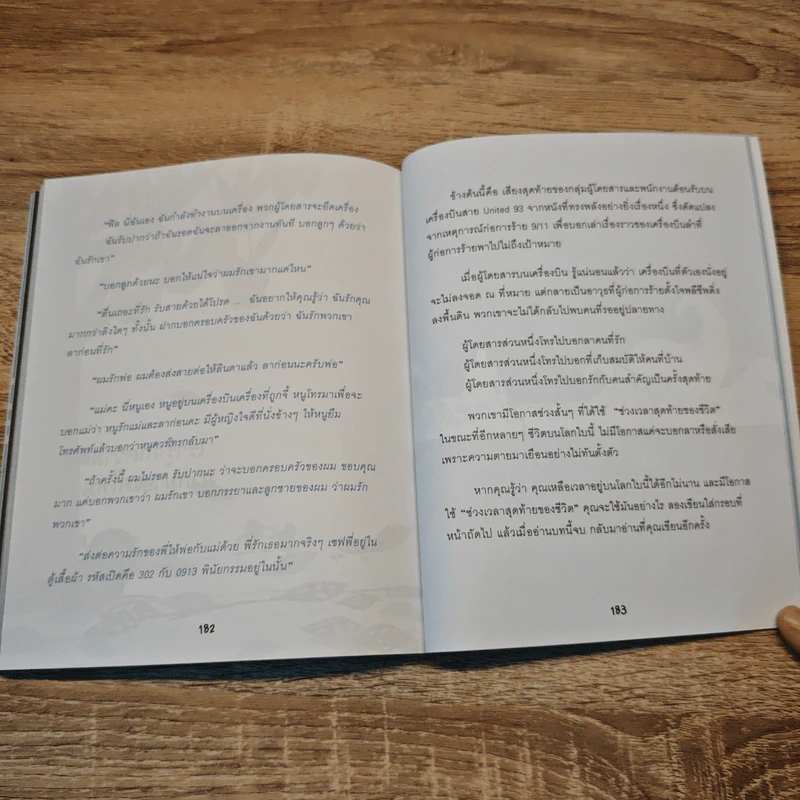 "ฟิล นี่ฉันเอง ฉันกำลังทำงานบนเครื่อง พวกผู้โดยสารจะยึดเครื่อง
ฉันรับปากว่าถ้าฉันรอดฉันจะลาออกจากงานทันที บอกลูกๆ ด้วยว่า
ฉันรักเขา"
"บอกลูกด้วยนะ บอกให้แน่ใจว่าผมรักเขามากแค่ไหน"
"ตื่นเถอะที่รัก รับสายด้วยได้โปรด ... ฉันอยากให้คุณรู้ว่า ฉันรักคุณ
มากกว่าสิ่งใดๆ ทั้งนั้น ฝากบอกครอบครัวของฉันด้วยว่า ฉันรักพวกเขา
ลาก่อนที่รัก"
"ผมรักพ่อ ผมต้องส่งสายต่อให้ลินดาแล้ว ลาก่อนนะครับพ่อ"
"แม่คะ นี่หนูเอง หนูอยู่บนเครื่องบินเครื่องที่ถูกจี้ หนูโทรมาเพื่อจะ
บอกแม่ว่า หนูรักแม่และลาก่อนคะ มีผู้หญิงใจดีที่นั่งข้างๆ ให้หนูยืม
โทรศัพท์แล้วบอกว่าหนูควรโทรกลับมา"
"ถ้าครั้งนี้ ผมไม่รอด รับปากนะ ว่าจะบอกครอบครัวของผม ขอบคุณ
มาก แค่บอกพวกเขาว่า ผมรักเขา บอกภรรยาและลูกชายของผม ว่าผมรัก
พวกเขา"
"ส่งต่อความรักของพี่ให้พ่อกับแม่ด้วย พี่รักเธอมากจริงๆ เซฟพี่อยู่ใน
ตู้เสื้อผ้า รหัสเปิดคือ 302 กับ 0913 พินัยกรรมอยู่ในนั้น"
182
ข้างต้นนี้คือ เสียงสุดท้ายของกลุ่มผู้โดยสารและพนักงานต้อนรับบน
เครื่องบินสาย United 93 จากหนังที่ทรงพลังอย่างยิ่งเรื่องหนึ่ง ซึ่งดัดแปลง
จากเหตุการณ์ก่อการร้าย 9/11 เพื่อบอกเล่าเรื่องราวของเครื่องบินลำที่
ผู้ก่อการร้ายพาไปไม่ถึงเป้าหมาย
เมื่อผู้โดยสารบนเครื่องบิน รู้แน่นอนแล้วว่า เครื่องบินที่ตัวเองนั่งอยู่
จะไม่ลงจอด ณ ที่หมาย แต่กลายเป็นอาวุธที่ผู้ก่อการร้ายตั้งใจพลีชีพดิ่ง
ลงพื้นดิน พวกเขาจะไม่ได้กลับไปพบคนที่รออยู่ปลายทาง
ผู้โดยสารส่วนหนึ่งโทรไปบอกลาคนที่รัก
ผู้โดยสารส่วนหนึ่งโทรไปบอกที่เก็บสมบัติให้คนที่บ้าน
ผู้โดยสารส่วนหนึ่งโทรไปบอกรักกับคนสำคัญเป็นครั้งสุดท้าย
พวกเขามีโอกาสช่วงสั้นๆ ที่ได้ใช้ "ช่วงเวลาสุดท้ายของชีวิต"
ในขณะที่อีกหลายๆ ชีวิตบนโลกใบนี้ ไม่มีโอกาสแค่จะบอกลาหรือสั่งเสีย
เพราะความตายมาเยือนอย่างไม่ทันตั้งตัว
หากคุณรู้ว่า คุณเหลือเวลาอยู่บนโลกใบนี้ได้อีกไม่นาน และมีโอกาส
ใช้ "ช่วงเวลาสุดท้ายของชีวิต" คุณจะใช้มันอย่างไร ลองเขียนใส่กรอบที่
หน้าถัดไป แล้วเมื่ออ่านบทนี้จบ กลับมาอ่านที่คุณเขียนอีกครั้ง
183